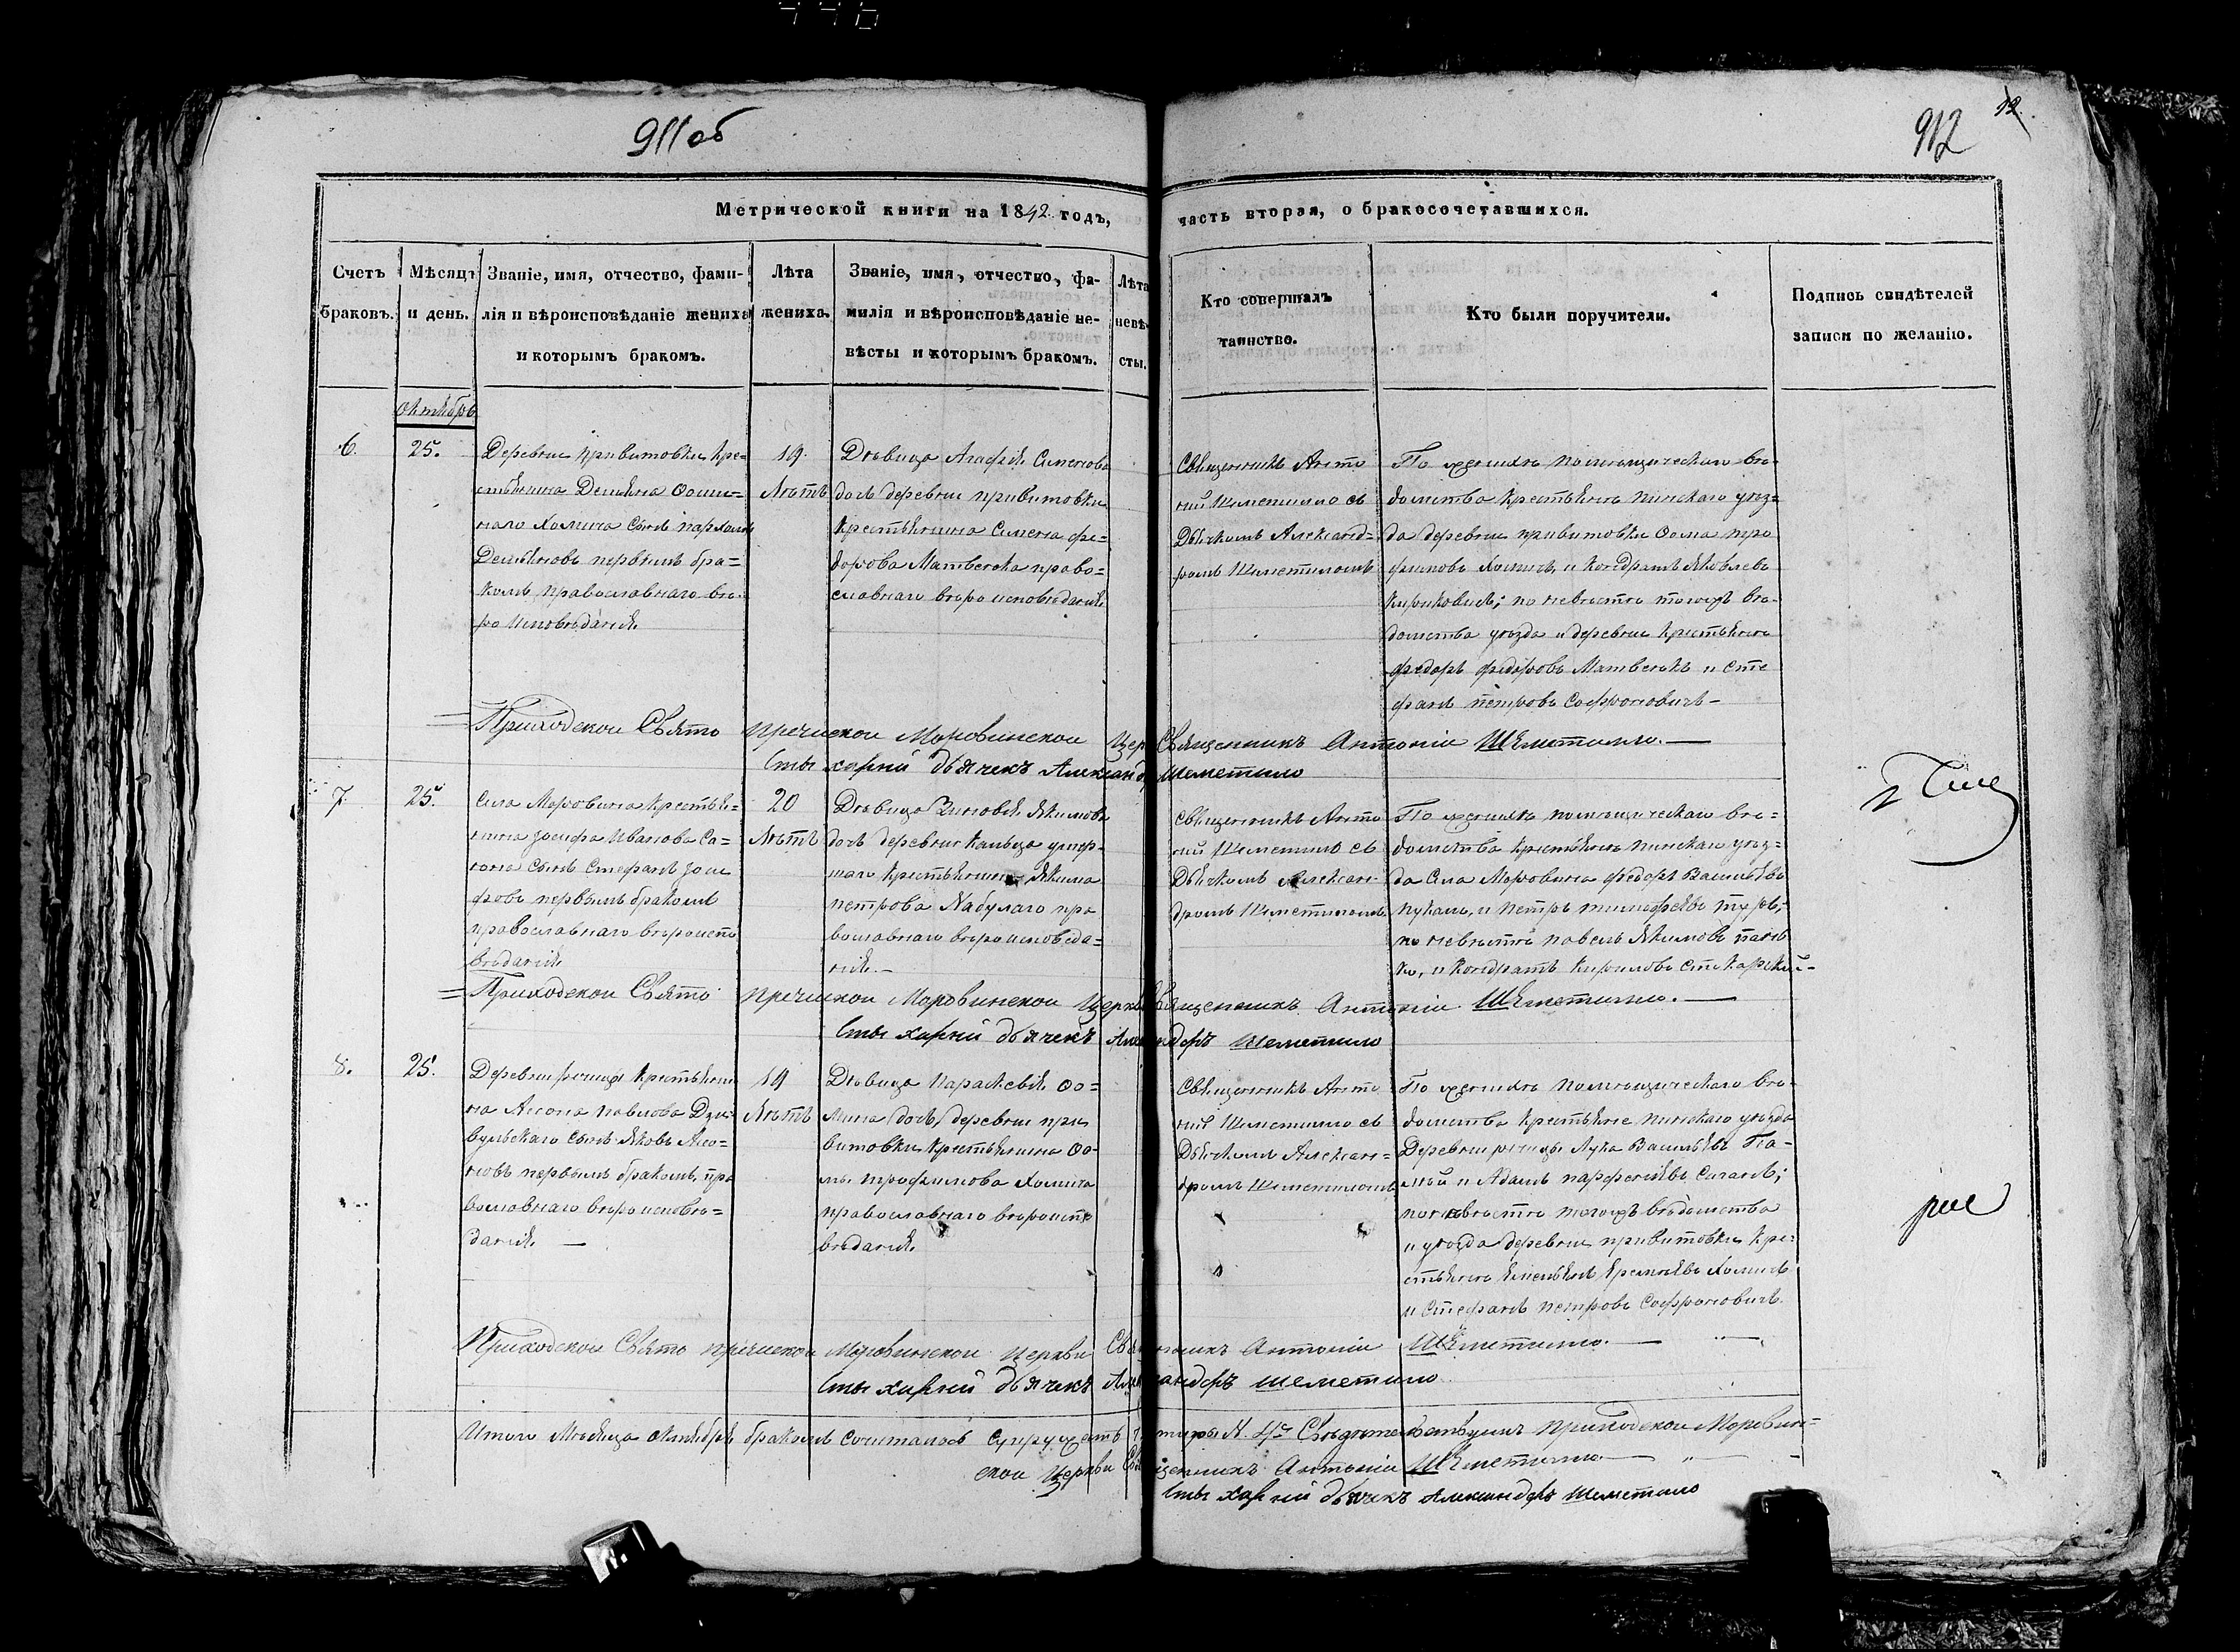 911 об
912
12.
Метрической книги на 1842 годъ, часть вторая, о бракосочетавшихся.
Счетъ браковъ.
Мѣсяцъ и день.
Званіе, имя, отчество, фами-
лія и вѣроисповѣданіе жениха
и которымъ бракомъ.
Лѣта
жениха.
Званіе, имя, отчество, фа-
милія и вѣроисповѣданіе не-
вѣсты и которымъ бракомъ.
Лѣта
невѣ-
сты.
Кто совершалъ
таинство.
Кто были поручители.
Подпись свидѣтелей
записи по желанію.
Октября
6.
25.
Деревни Привитовки кре=
стьянина Демьяна Ѳоми=
наго Хомича сынъ Пархомъ
Демьяновъ первымъ бра=
комъ, православнаго вѣ-
роисповѣданія
19
лѣтъ
Дѣвица Агафія Сименова
дочь деревни Привитовки
крестьянина Симена Фе=
дорова Матвеюка право=
славнаго вѣроисповѣданія
Священникъ Анто
ній Шеметилло съ
Дьячкомъ Александ=
ромъ Шеметиломъ
По женихѣ помѣщическаго вѣ-
домства крестьяне Пинскаго уѣз=
да деревни Привитовки Ѳома Тро
фимовъ Хомичъ, и Кондратъ Яковлевъ
Кириковичъ; по невѣстѣ тогожъ вѣ-
домства уѣзда и деревни крестьяне
Федоръ Федоровъ Матвеюкъ и Сте
фанъ Петровъ Софроновичъ-
Приходской Свято Пречиской Моровинской Цер Священникъ Антоній Шеметилло.
Стихарный дьячекъ Александръ Шеметило
7.
25.
Села Моровина крестья=
нина Іосифа Иванова Са=
сынъ Стефанъ Іоси
фовъ первымъ бракомъ
православнаго вѣроиспо
вѣданія
20
лѣтъ
Дѣвица Зиновія Якимова
дочь деревни Кальца умер
шаго крестьянина Якима
Петрова Хабулаго пра
вославнаго вѣроисповеда=
нія.-
Священникъ Анто
ній Шеметилло съ
Дьячкомъ Алексан-
дромъ Шеметиломъ
По женихѣ помѣщическаго вѣ=
домства крестьяне Пинскаго уѣз=
да села Моровина Федоръ Васильевъ
и Петръ Тимофѣевъ
по невѣстѣ Павелъ Якимовъ
и Кондратъ Кириловъ
Приходской Свято Пречиской Моровинской Церкви Священникъ Антоній Шеметилло.
Стихарный дьячекъ Александръ Шеметило
8.
25.
Деревни Рѣчицы крестьяни
на Павлова
сынъ Яковъ
первымъ бракомъ, пра
вославнаго вѣроисповѣ=
данія.
19
лѣтъ
Дѣвица Параскевія Ѳо=
мина дочь деревни При
витовки крестьянина Ѳо-
мы Трофимова Хомича
православнаго вѣроиспо
вѣданія.
Священникъ Анто
ній Шеметилло съ
Дьячкомъ Алексан=
дромъ Шеметиломъ
По женихѣ помѣщическаго вѣ-
домства крестьяне Пинскаго уѣзда
Деревни Рѣчицы Лука Васильевъ
и Адамъ Парфеніевъ
по невѣстѣ тогожъ вѣдомства
и уѣзда деревни Привитовки кре=
стьяне Емельянъ Хомичъ
и Стефанъ Петровъ Софроновичъ.
Приходской Свято Пречиской Моровинской Церкви Священникъ Антоній Шеметилло.
Стихарный дьячекъ Александръ Шеметило
Итого Мѣсяца Октября бракомъ сочеталось супружествъ четыре N. 4. Свѣдѣтельствуемъ Приходской Моровин=
ской Церкви Священникъ Антоній Шеметилло
Стихарный дьячекъ Александръ Шеметило